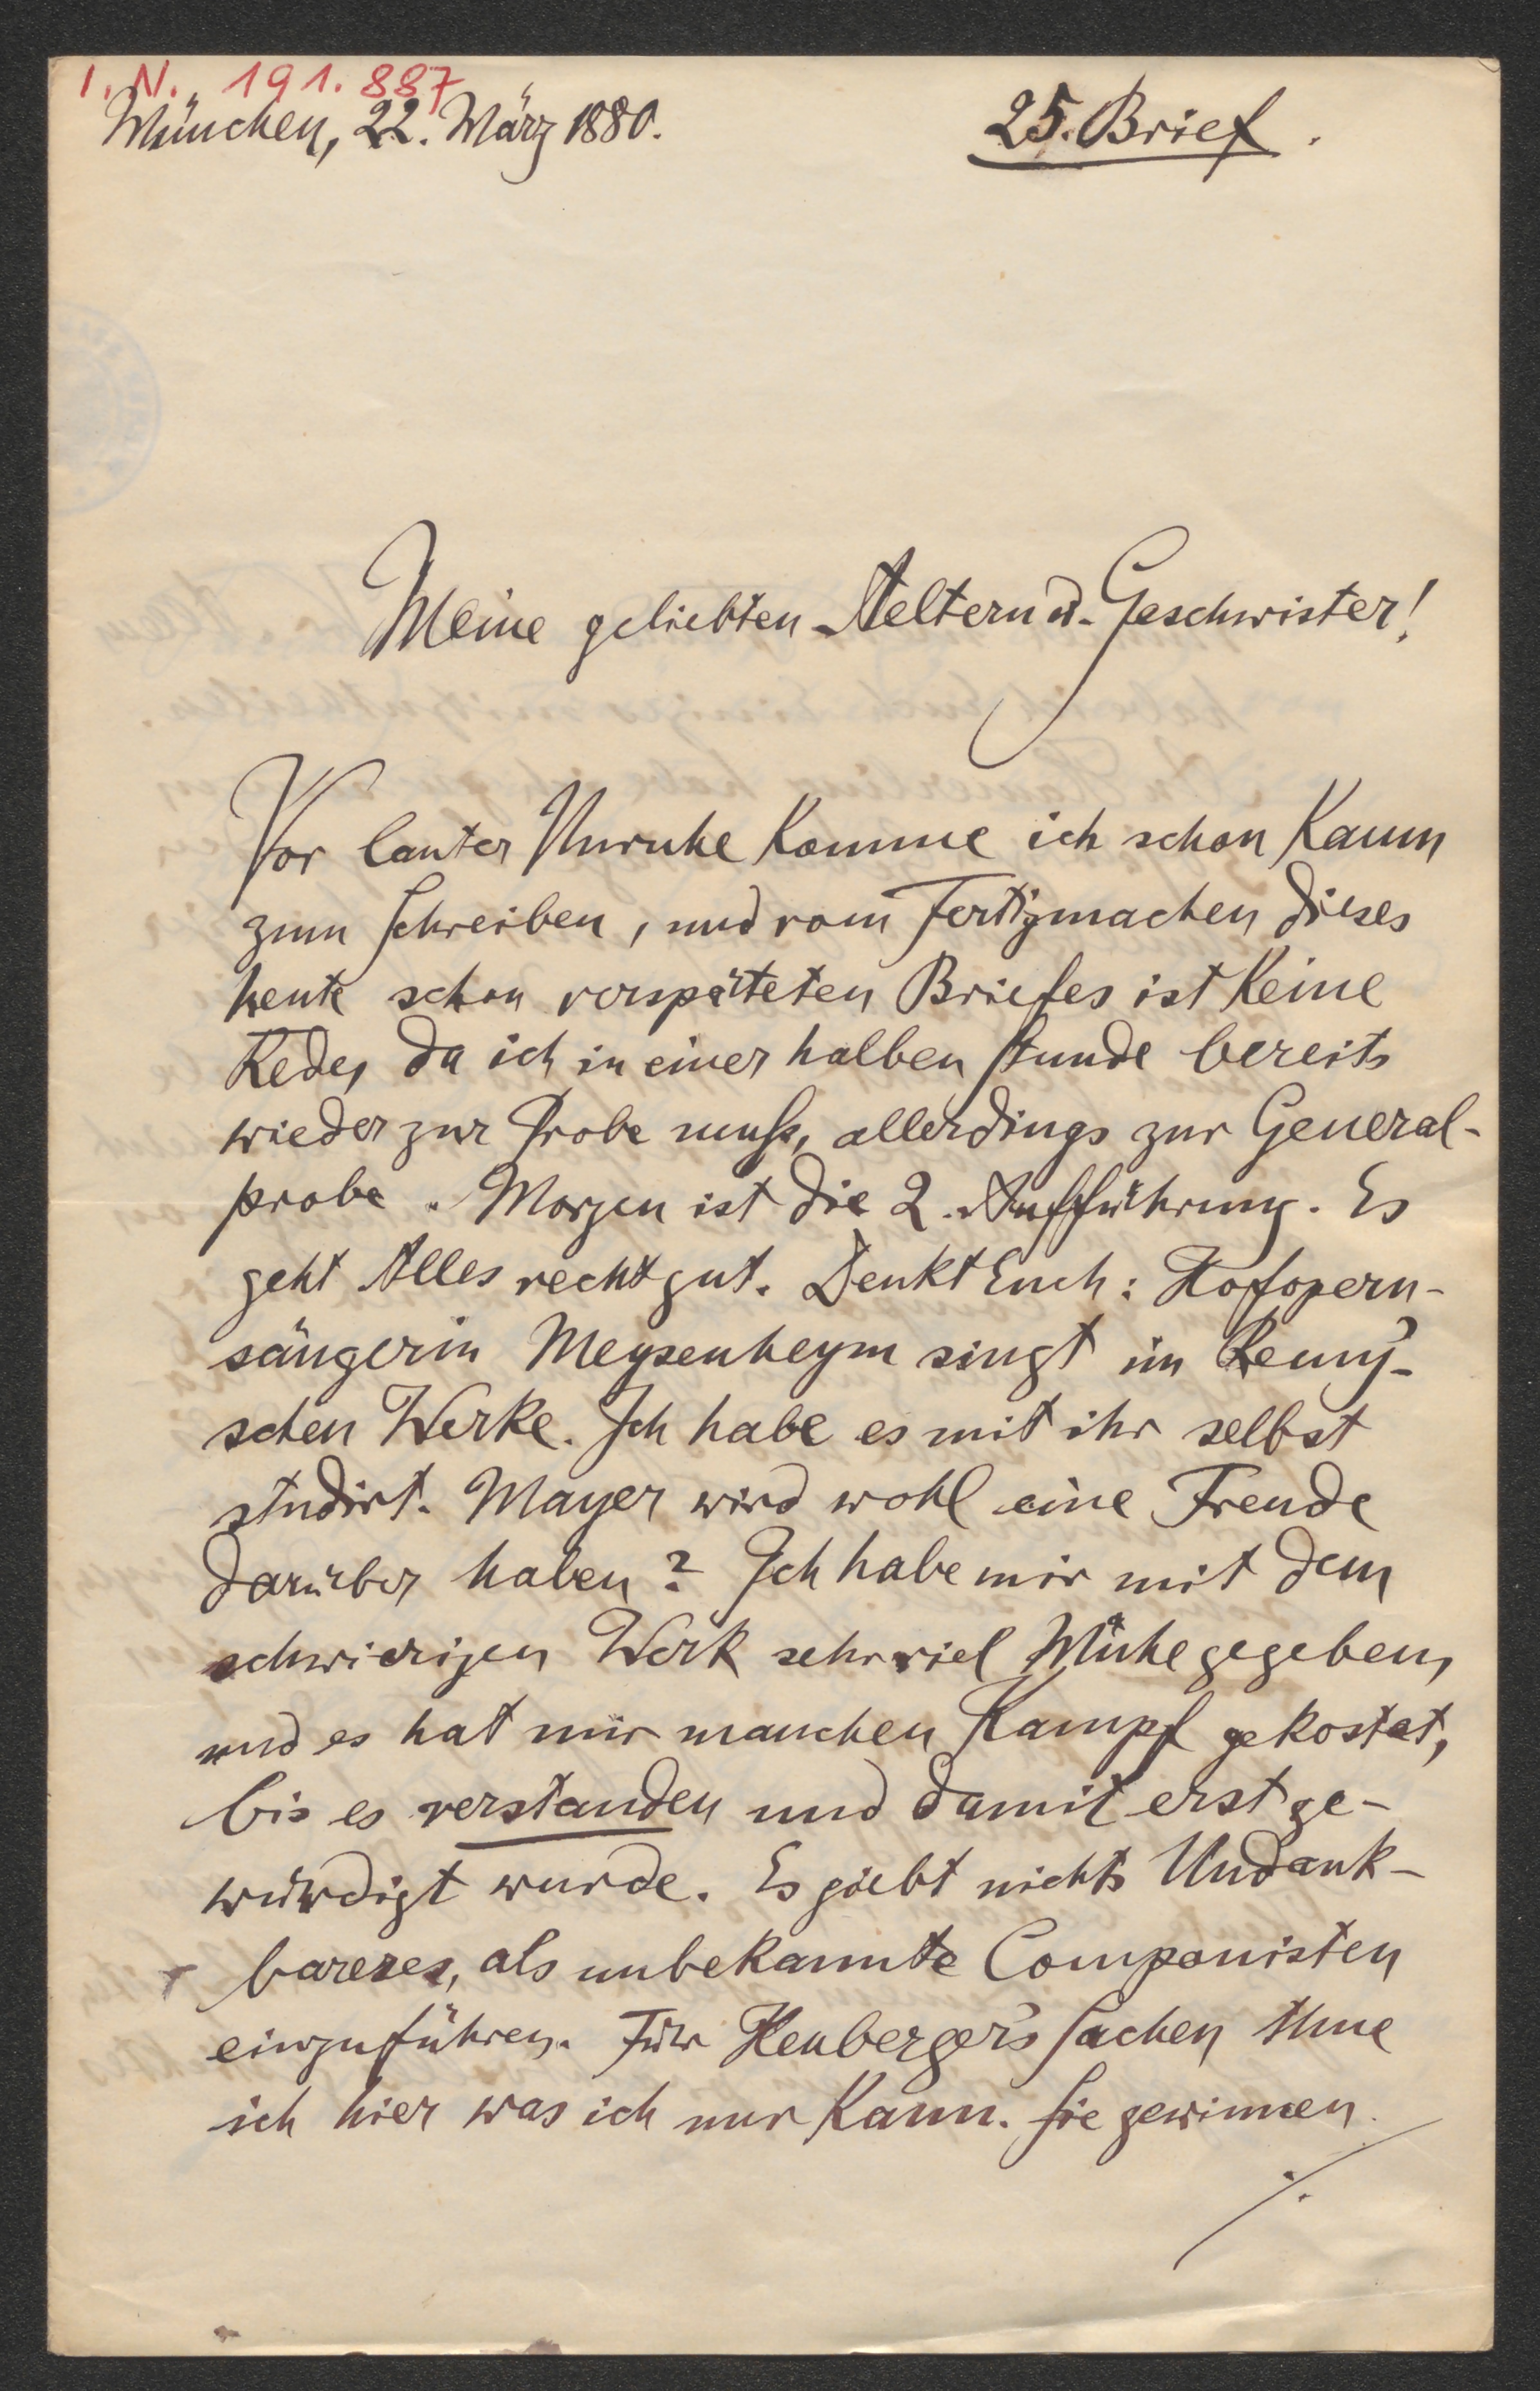 I. N. 191.887
München, 22. März 1880.
25. Brief.
Meine geliebten Aeltern u. Geschwister!
Vor lauter Unruhe komme ich schon kaum
zum Schreiben, und vom Fertigmachen dieses
heute schon verspäteten Briefes ist keine
Rede, da ich in einer halben Stunde bereits
wieder zur Probe muß, allerdings zur General-
probe. Morgen ist die 2. Aufführung. Es
geht Alles recht gut. Denkt Euch: Hofopern-
sängerin Meysenheym singt im Remy'-
schen Werke. Ich habe es mit ihr selbst
studirt. Mayer wird wohl eine Freude
darüber haben? Ich habe mir mit dem
schwierigen Werk sehr viel Mühe gegeben,
und es hat mir manchen Kampf gekostet,
bis es verstanden und damit erst ge-
würdigt wurde. Es giebt nichts Undank-
bareres, als unbekannte Componisten
einzuführen. Für Heuberger's Sachen thue
ich hier was ich nur kann. Sie gewinnen
./.